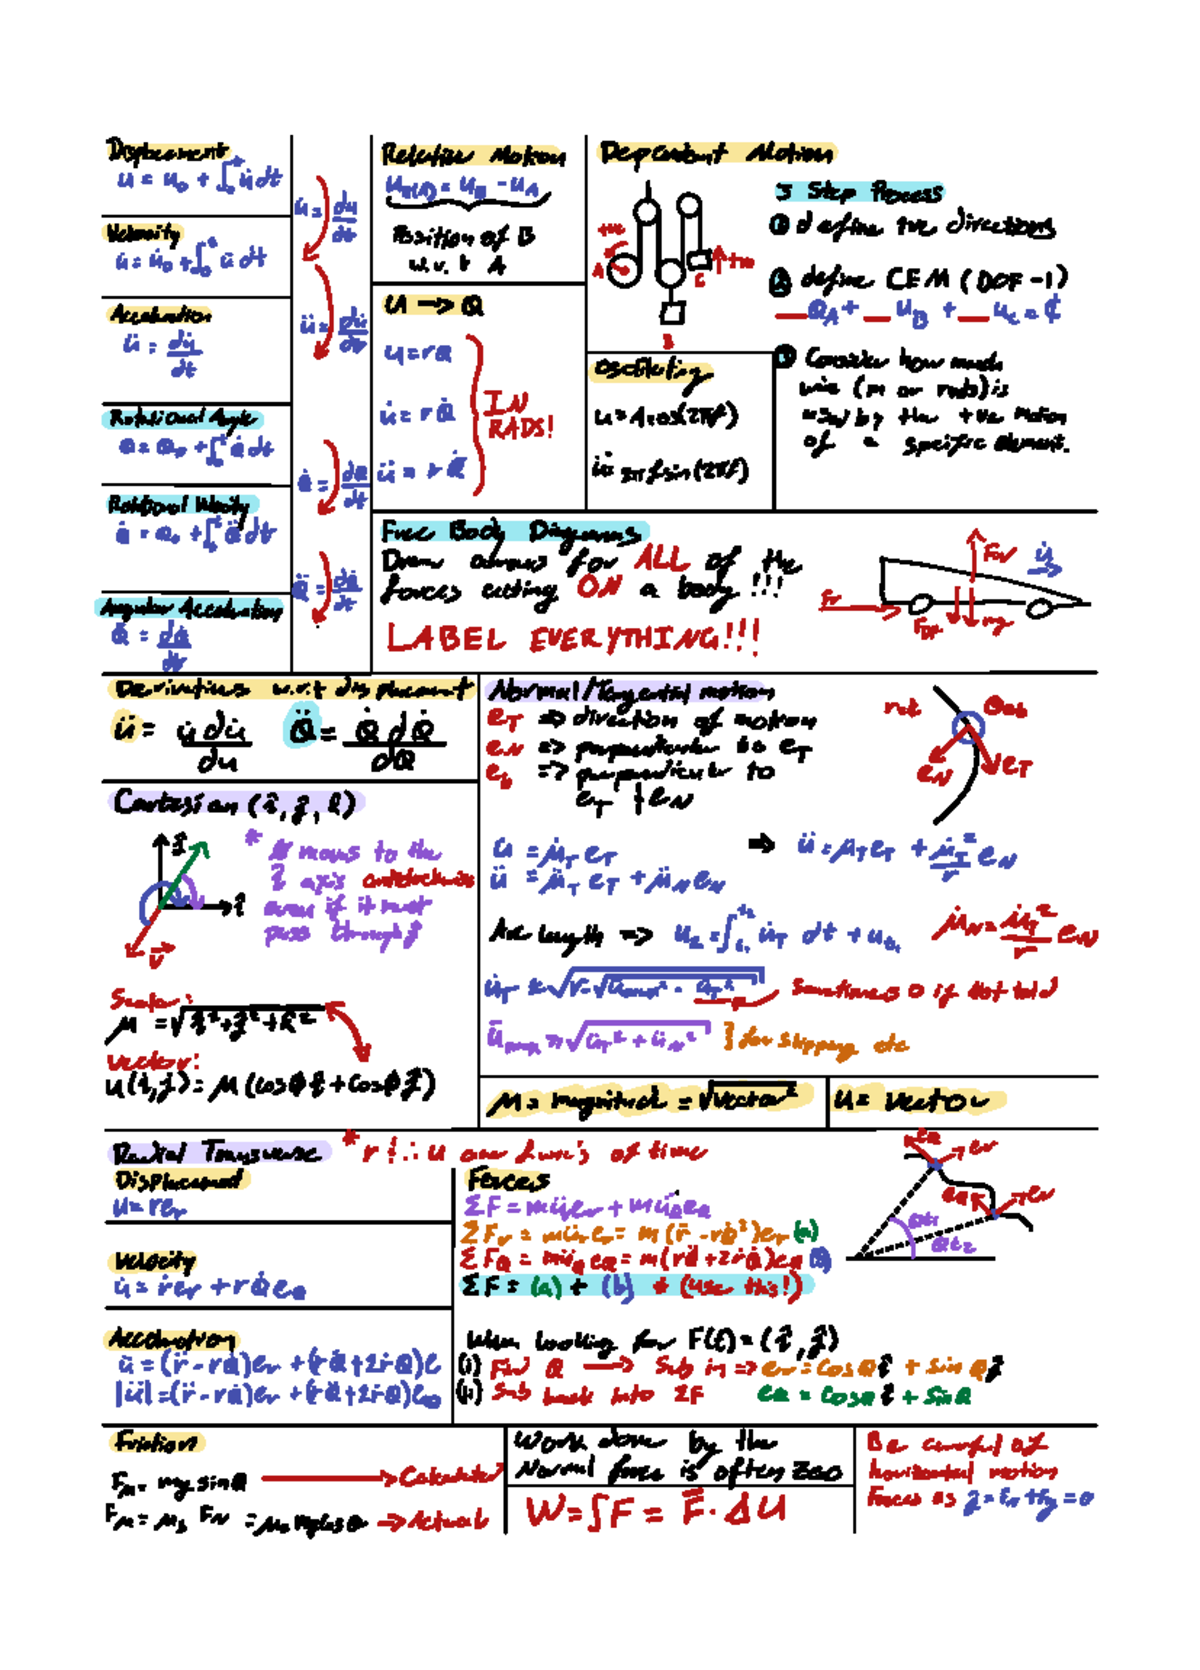 Displacement
u = u₀ + ∫₀ᵗ u̇ dt
Velocity
u̇ = u̇₀ + ∫₀ᵗ ü dt
Acceleration
ü = du̇/dt
Rotational Angle
θ = θ₀ + ∫₀ᵗ θ̇ dt
Rotational Velocity
θ̇ = θ̇₀ + ∫₀ᵗ θ̈ dt
Angular Acceleration
θ̈ = dθ̇/dt
u̇ = du/dt
ü = du̇/dt
θ̇ = dθ/dt
θ̈ = dθ̇/dt
Relative Motion
u_B(A) = u_B - u_A
Position of B
w.r.t A
u → θ
u = rθ
u̇ = rθ̇
ü = rθ̈
IN
RADS!
Dependent Motion
+ve
A
B
C
+ve
3 Step Process
① define +ve directions
② define CEM (DOF -1)
_θ_A + _u_B + _u_C = ₵
③ Consider how much
wire (m or rads) is
by the +ve motion
of a specific element.
Oscillating
u = A cos(2πf)
2πf sin(2πf)
Free Body Diagrams
Draw arrows for ALL of the
forces acting ON a body!!!
LABEL EVERYTHING!!!
Fr
F_N
F_DF
mg
u̇
Derivatives w.r.t displacement
ü = u̇ du̇/du
θ̈ = θ̇ dθ̇/dθ
Cartesian (î, ĵ, k̂)
ĵ
î
v⃗
* moves to the
axis anticlockwise
even if it must
pass through
Scalar:
μ = √(î² + ĵ² + k̂²)
vector:
u(î, ĵ) = μ(cosφ î + cosφ ĵ)
Normal/Tangential motion
e_T ⇒ direction of motion
e_N ⇒ perpendicular to e_T
e_b ⇒ perpendicular to
e_T + e_N
e_N
e_T
u̇ = μ̇_T e_T
ü = μ̈_T e_T + μ̈_N e_N
⇒ ü = μ̈_T e_T + μ̇_T²/r e_N
Arc length ⇒ u₂ = ∫ u̇_T dt + u_t₁
μ̈_N = μ̇_T²/r e_N
sometimes 0 if not told
ü_max = √(ü_T² + ü_N²) } for slipping etc
μ = magnitude = √vector²
u = vector
Radial Transverse
* r & ∴ u are func's of time
Displacement
u = re_r
Velocity
u̇ = ṙe_r + rθ̇e_θ
Acceleration
ü = (r̈ - rθ̇)e_r + (rθ̈ + 2ṙθ̇)e
|ü| = (r̈ - rθ̇)e_r + (rθ̈ + 2ṙθ̇)e_θ
Forces
ΣF = mü_r e_r + mü_θ e_θ
ΣF_r = mü_r e_r = m(r̈ - rθ̇²)e_r (a)
ΣF_θ = mü_θ e_θ = m(rθ̈ + 2ṙθ̇)e_θ (b)
ΣF = (a) + (b) * (use this!)
When looking for F(t) = (î, ĵ)
(i) Find θ → Sub in ⇒ e_r = cosθ î + sinθ ĵ
(ii) Sub back into ΣF e_θ = cosθ î + sinθ
e_θ
e_r
e_θ
e_r
θt₁
θt₂
Friction
F_μ = mg sinθ → Calculated
F_μ = μ_s F_N = μ_s mg cosθ → Actual
Work done by the
Normal force is often zero
W = ∫F = F̄ · ΔU
Be careful of
horizontal motion
Forces as